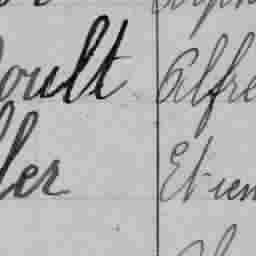 oult Alfre
ler Etien